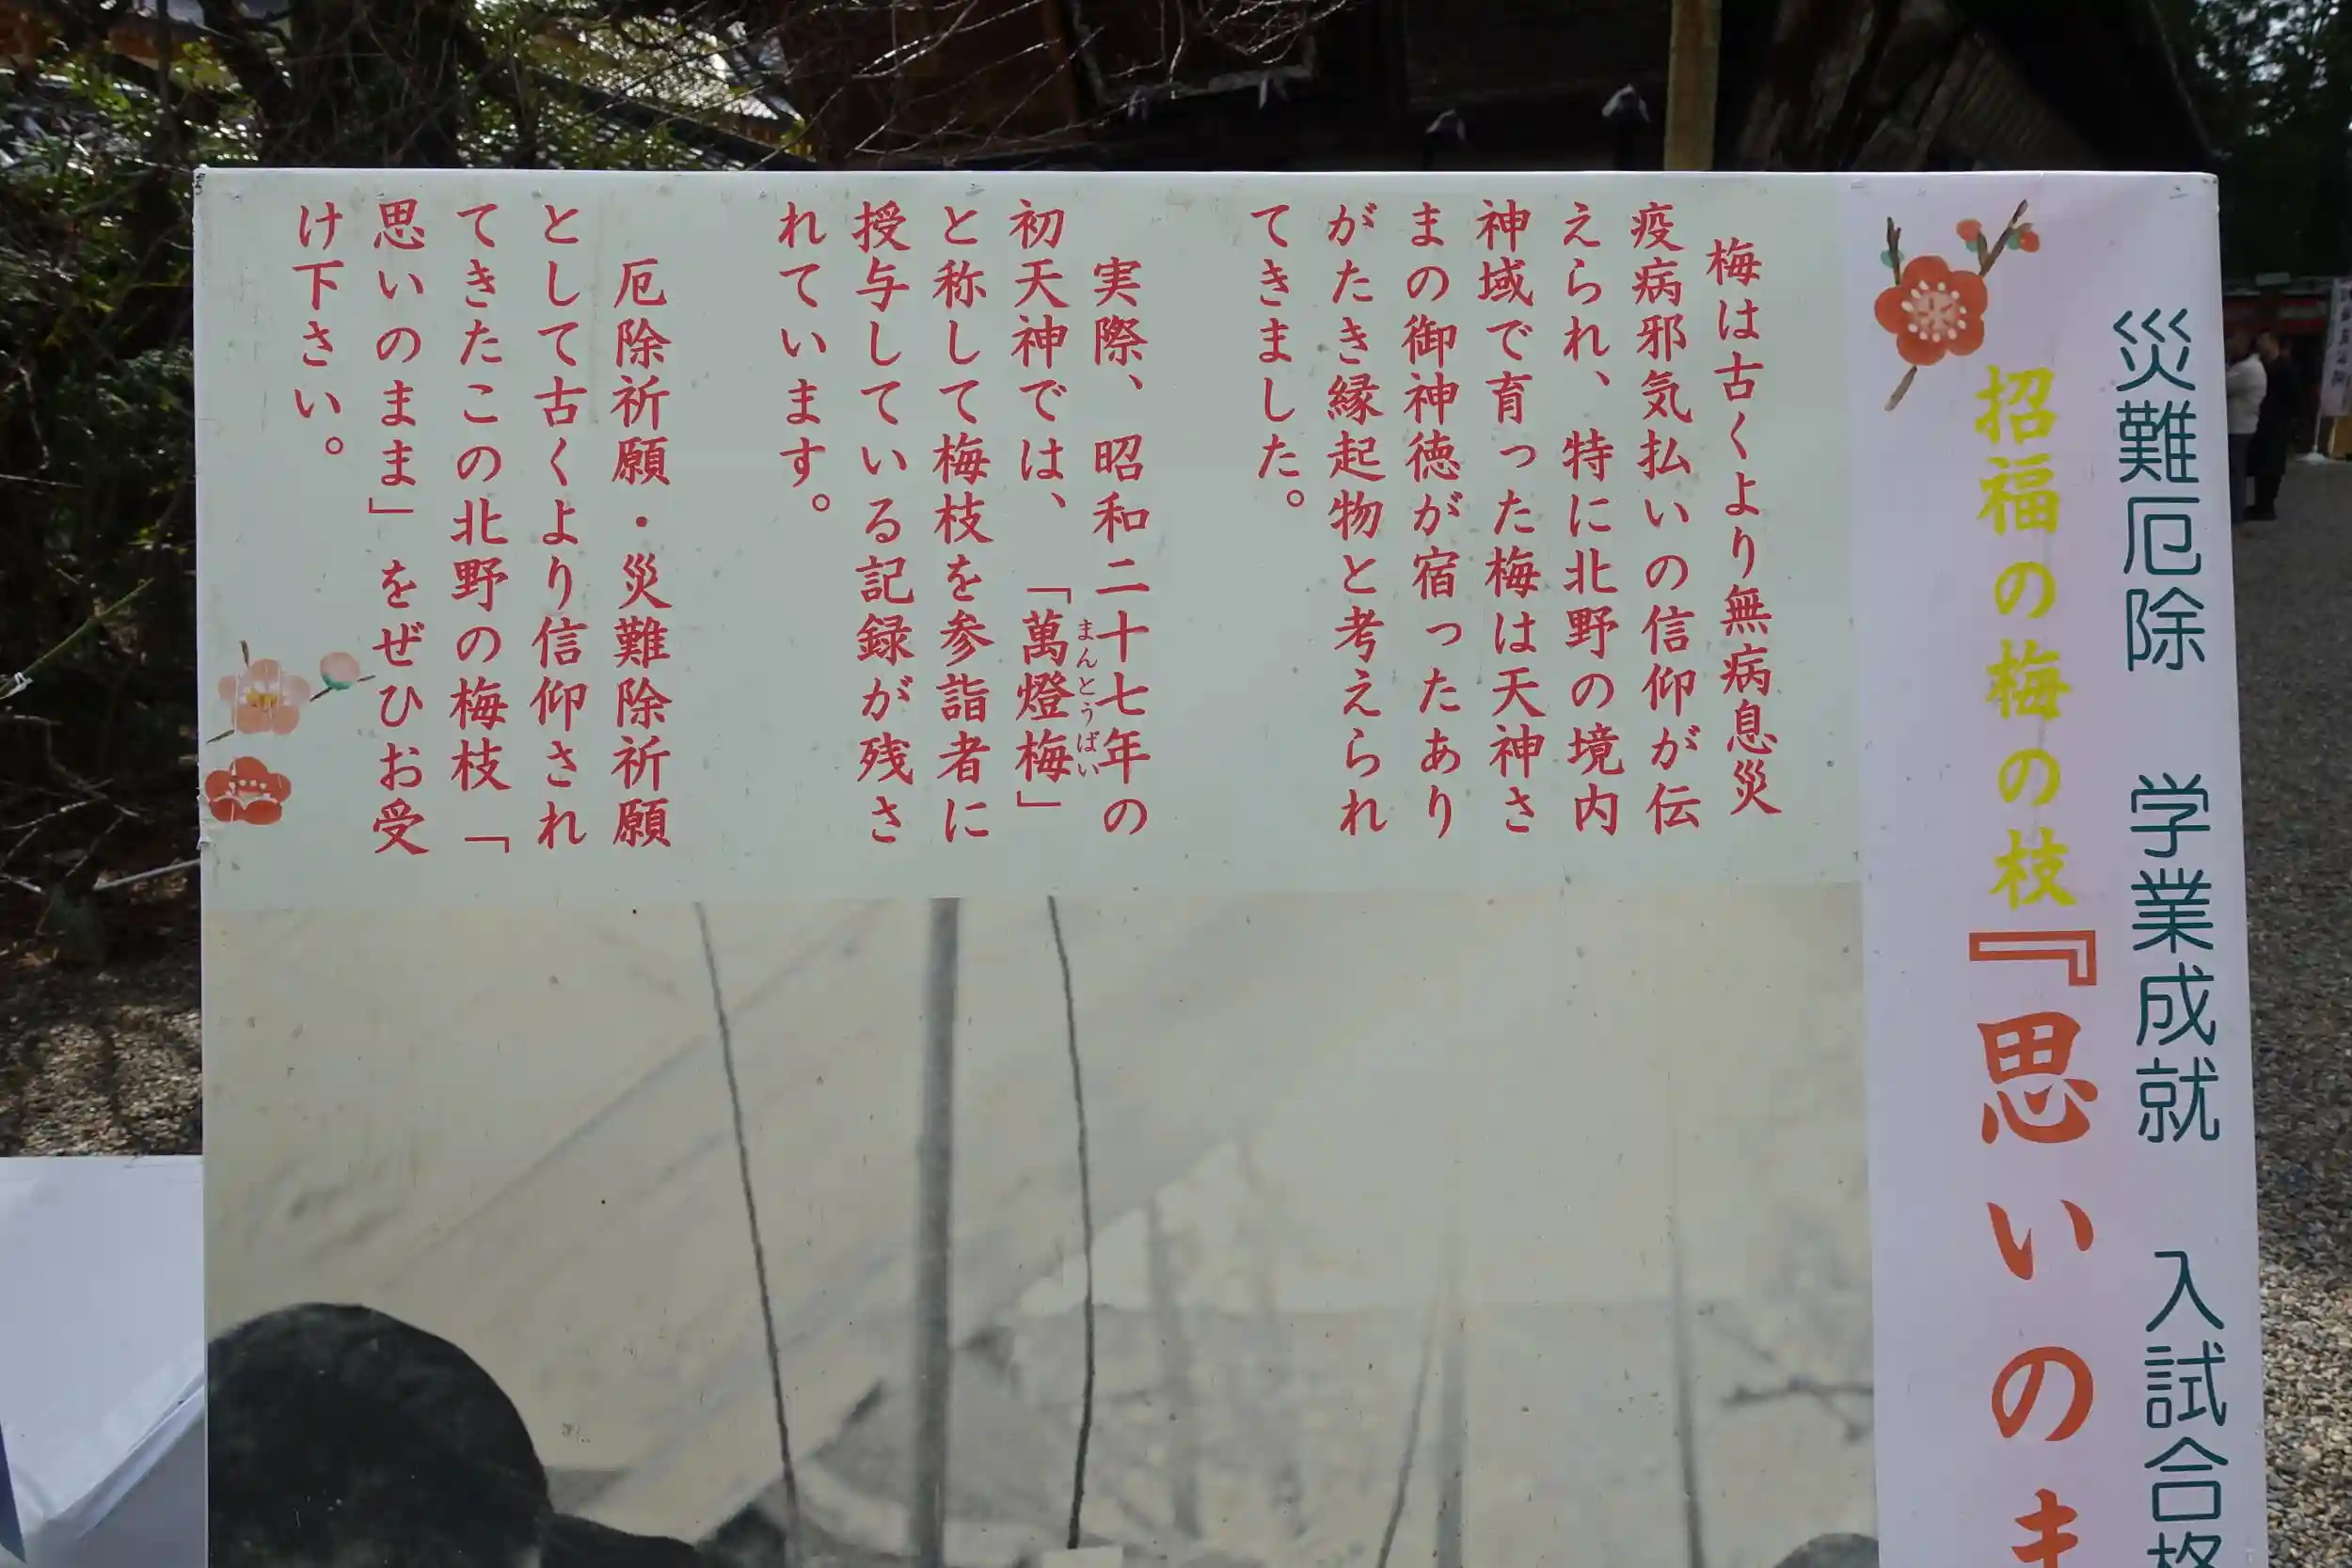 災難厄除　学業成就　入試合格
招福の梅の枝『思いのま
梅は古くより無病息災
疫病邪気払いの信仰が伝
えられ、特に北野の境内
神域で育った梅は天神さ
まの御神徳が宿ったあり
がたき縁起物と考えられ
てきました。
実際、昭和二十七年の
初天神では、「萬燈梅」
まんとうばい
と称して梅枝を参詣者に
授与している記録が残さ
れています。
厄除祈願・災難除祈願
として古くより信仰され
てきたこの北野の梅枝「
思いのまま」をぜひお受
け下さい。